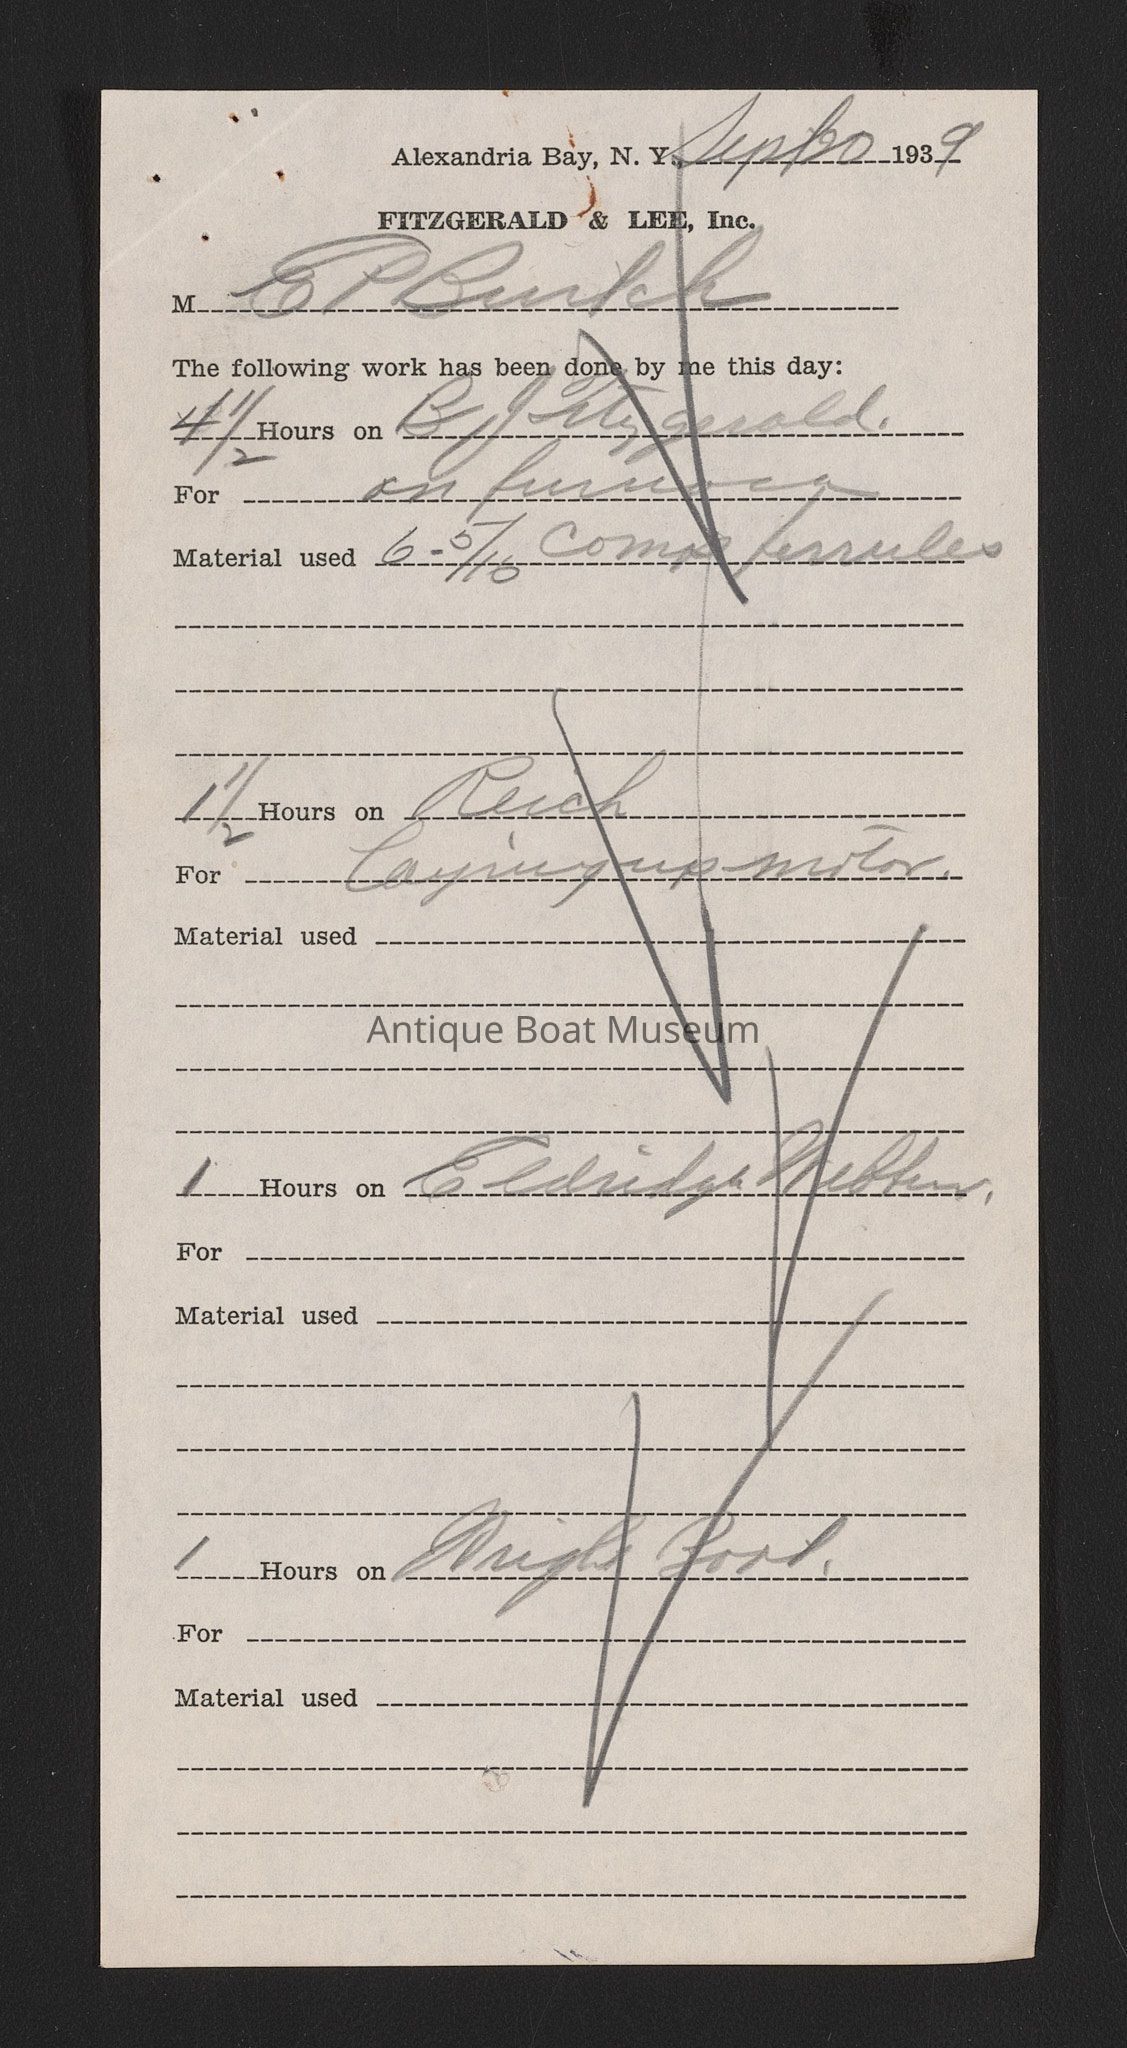 Alexandria Bay, N. Y. Sept 30 1939
FITZGERALD & LEE, Inc.
M E P Burtch
The following work has been done by me this day:
4 1/2 Hours on B J Fitzgerald.
For on furnace
Material used 6 - 5/16 comp ferrules
1 1/2 Hours on Reich
For Laying up motor.
Material used
Antique Boat Museum
1 Hours on Eldridge
For
Material used
1 Hours on Wright Boat.
For
Material used